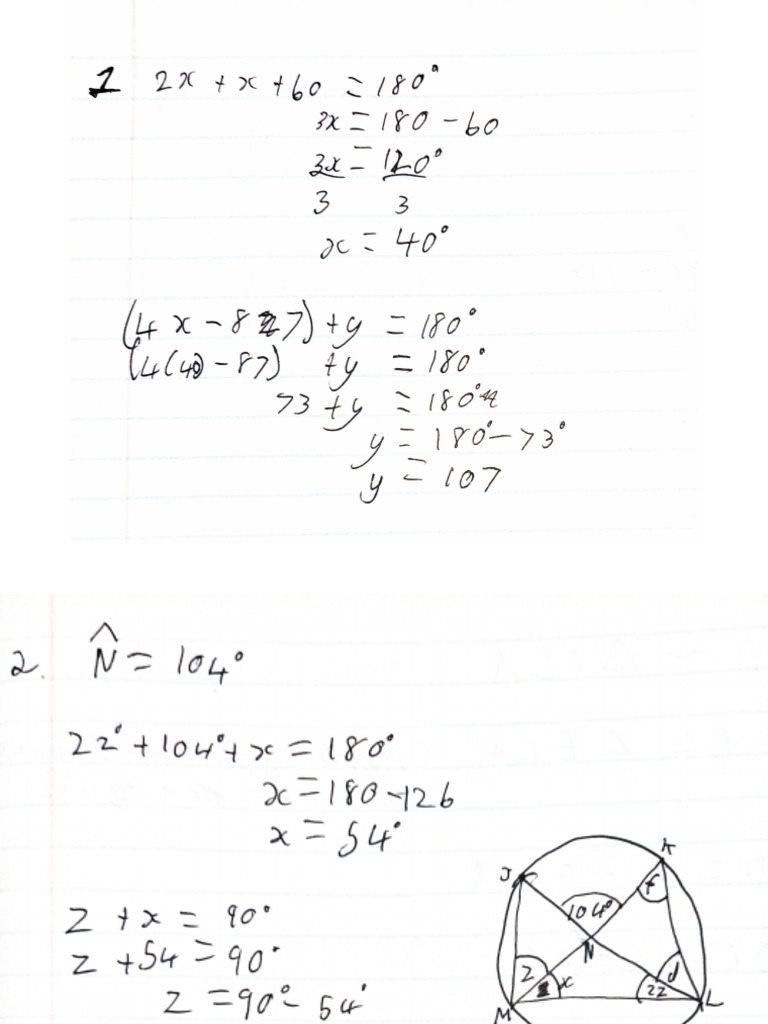 1 2x + x + 60 = 180°
3x = 180 - 60
3x = 120°
3 3
x = 40°
(4x - 87) + y = 180°
(4(40) - 87) + y = 180°
73 + y = 180°
y = 180° - 73°
y = 107
2. N̂ = 104°
22° + 104° + x = 180°
x = 180 - 126
x = 54°
z + x = 90°
z + 54 = 90°
z = 90° - 54°
J K
104° f
N
z x 22 d
M L